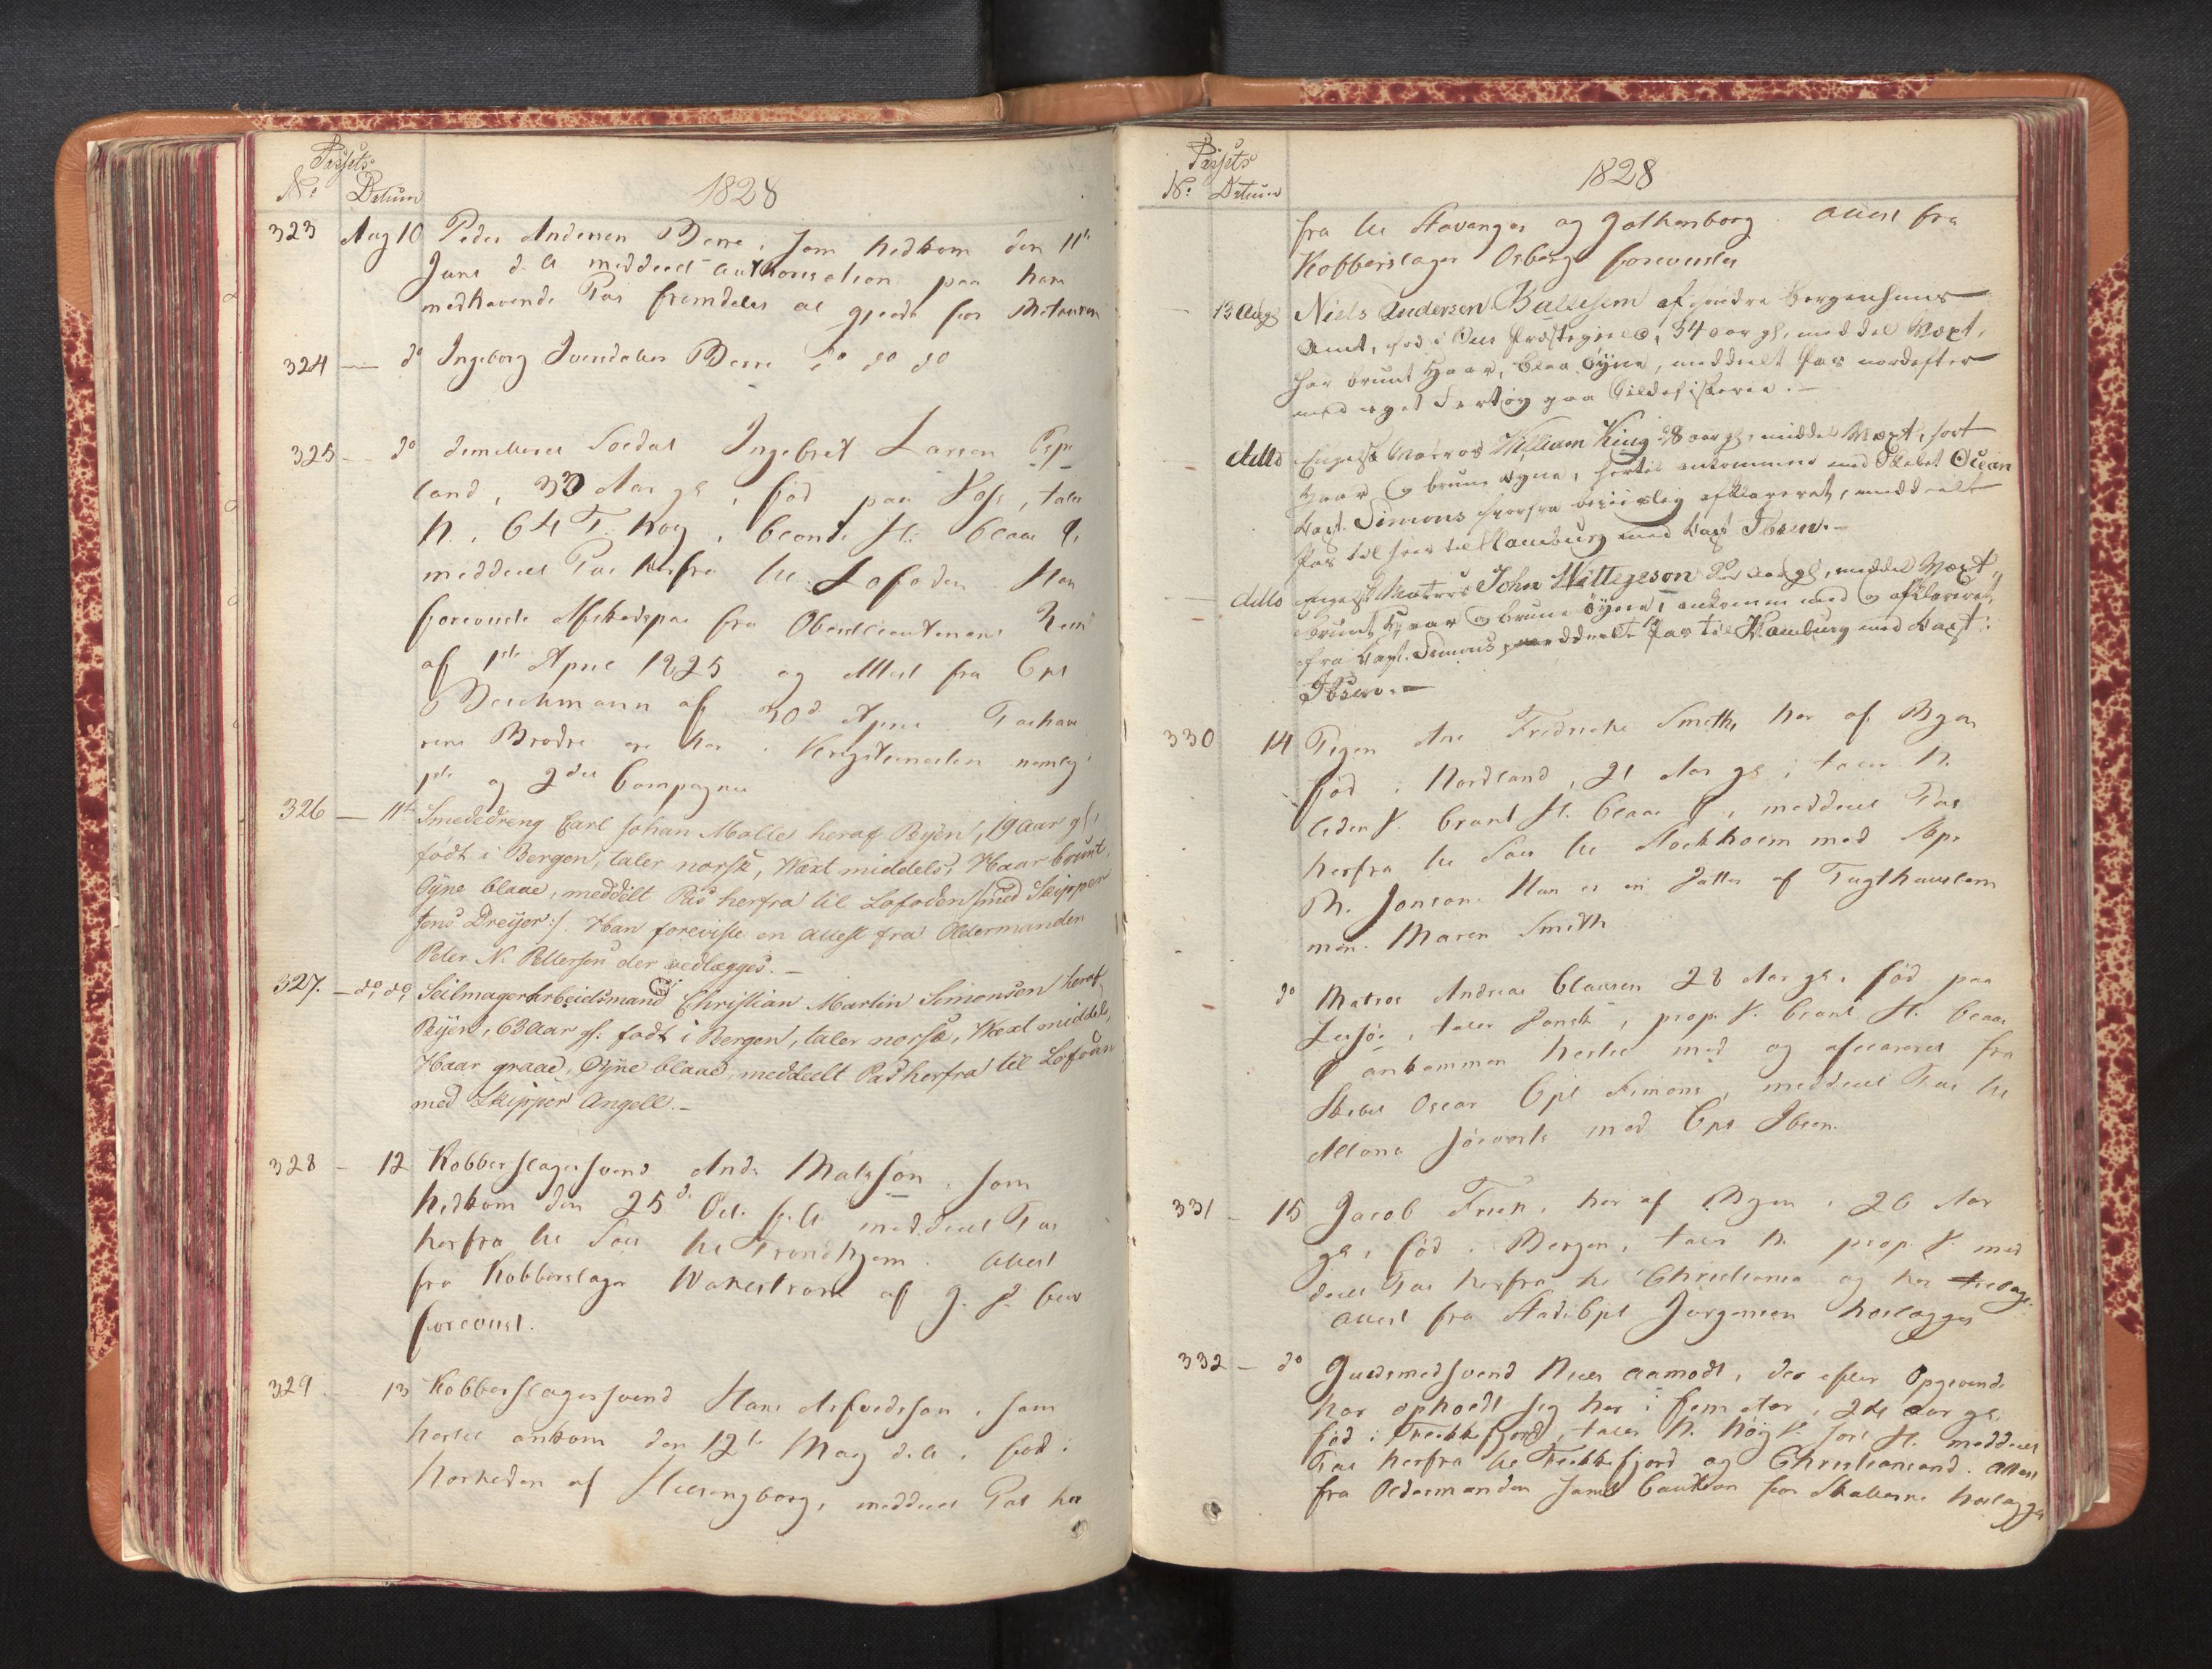 Passets
No. Datum
1828
323 Aug 10 Peder Andersen Berre, som hidkom den 11te
Juni d. A. meddeelt authorisation paa hans
medhavende Pas fremdeles at gjælde for Retouren
324 — do Ingeborg Iversdatter Berre do do do
325 — do demitteret Soldat Ingebret Larsen Esp
land, 33 Aar gl, fød paa Voss, taler
N., 64 T. høy, blondt H. blaae Ø.
meddeelt Pas herfra til Lofoden. Han
foreviste Afskedspas fra Obrstlieutenant
af 1ste April 1825 og Attest fra Cpt
af 30d April Pashave
rens Brødre ere her i nemlig
1ste og 2det Compagnie
326 — 11te Smededreng Carl Johan Malle heraf Byen, 19 Aar gl,
født i Bergen, taler norsk, Væxt middels, Haar brunt,
Øyne blaae, meddelt Pas herfra til Lofoden /:med Skipper
Jens Dreijer:/. Han foreviste en Attest fra Oldermanden
Peter N. Pettersen der vedlægges. —
327. — do, do, Seilmager Arbeidsmand Christian Martin Simonsen heraf
Byen, 63 Aar gl. født i Bergen, taler norsk, Væxt middels,
Haar graae, Øyne blaae, meddeelt Pas herfra til Lofoden
med Skipper Angell. —
328 — 12 Kobberslagersvend Ands Matsson, som
hidkom den 25de Oct. f. A. meddeelt Pas
herfra til Søes til Trondhjem. Attest
fra Kobberslager af G. D. blev
forevist.
329 — 13 Kobberslagersvend Hans Arfvedsson, som
hertil ankom den 12te May d. A., fød i
Nærheden af Helsingborg, meddeelt Pas her
Passets
No. Datum
1828
fra til Stavanger og Gothenborg. Attest fra
Kobberslager Osberg forevistes
— 13 Augs Niels Andersen Ballesem af søndre Bergenhuus
Amt, fød i Præstegield, 34 aar gl, middel Væxt,
har brunt Haar, blaa Øyne, meddeelt Pas nordefter
med eget Fartøy paa Sildefiskerie. —
ditto Engelsk Matros William King 28 aar gl, middel Væxt, sort
Haar og brune øyne, hertil ankommen med Skibet Ocean
Capt. Simons hvorfra beviislig afklareret, meddeelt
Pas til Søes til Hamburg med Capt Ibsen. —
ditto Engelsk Matros John Wittegeson aar gl, middel Væxt,
brunt Haar og brune Øyne, ankommen med og afklareret
fra Capt. Simons meddeelt Pas til Hamburg med Capt.
Ibsen. —
330 14 Pigen Ane Fredricke Smith, her af Byen
fød i Nordland, 21 Aar gl, taler N.
liden V. brunt H. blaae Ø, meddeelt Pas
herfra til Søes til Stockholm med Skpr
M. Jonson. Hun er en Datter af Tugthuuslem
men Maren Smith
do Matros Andreas Clausen 28 Aar gl. fød paa
Lessøe, taler Dansk, prop. V. brunt H. blaae
Ø ankommen hertil med og afklareret fra
Skibet Oscar Cpt Simons, meddeelt Pas til
Altona søeverts med Cpt Ibsen.
331 — 15 Jacob Trien, her af Byen, 26 Aar
gl, fød i Bergen, taler N. prop. V. med
deelt Pas herfra til Christiania og her
Attest fra Stads Cpt Jürgensen hoslægges
332 — do Guldsmedsvend Niels Aamodt, der efter Opgivende
har opholdt sig her i fem Aar, 24 Aar gl,
fød i Fleckkefjord, taler N. høy V. sort H. meddeelt
Pas herfra til Fleckkefjord og Christiansand. Attest
fra Oldermanden samt Caution for Skatterne hoslægges